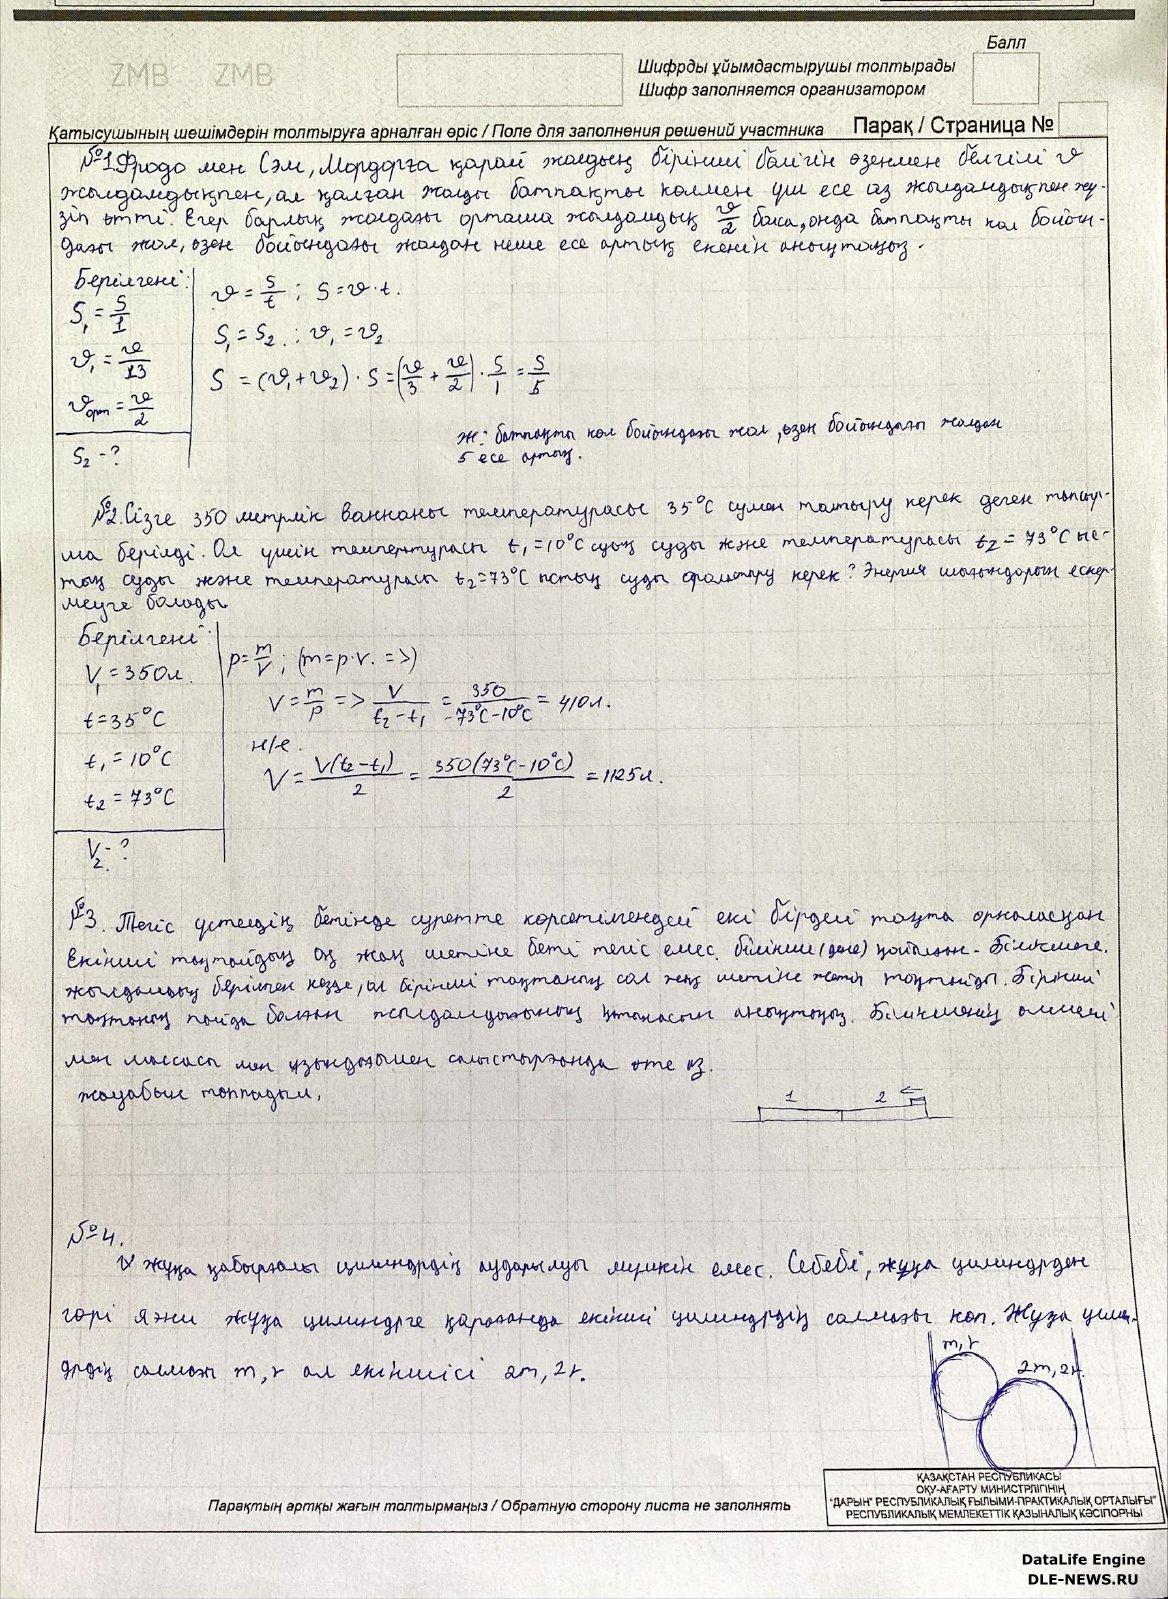 ZMB ZMB
Балл
Шифрды ұйымдастырушы толтырады
Шифр заполняется организатором
Қатысушының шешімдерін толтыруға арналған өріс / Поле для заполнения решений участника
Парақ / Страница №
№1 Фродо мен Сэм, Мордорға қарай жолдың бірінші бөлігін өзенмен белгілі υ
жылдамдықпен, ал қалған жолды батпақты көлмен үш есе аз жылдамдықпен жү-
зіп өтті. Егер барлық жолдағы орташа жылдамдық υ/2 болса, онда батпақты көл бойын-
дағы жол, өзен бойындағы жолдан неше есе артық екенін анықтаңыз.
Берілгені:
S₁ = S/1
υ₁ = υ/13
υорт = υ/2
S₂ - ?
υ = S/t ; S = υ·t.
S₁ = S₂ ; υ₁ = υ₂
S = (υ₁ + υ₂) · S = (υ/3 + υ/2) · S/1 = S/5
Ж: батпақты көл бойындағы жол, өзен бойындағы жолдан
5 есе артық.
№2. Сізге 350 метрлік ваннаны температурасы 35°C сумен толтыру керек деген тапсыр-
ма берілді. Ол үшін температурасы t₁ = 10°C суық суды және температурасы t₂ = 73°C ыс-
тық суды және температурасы t₂ = 73°C ыстық суды араластыру керек? Энергия шығындарын ескер-
меуге болады
Берілгені:
V₁ = 350л.
t = 35°C
t₁ = 10°C
t₂ = 73°C
V₂ - ?
p = m/V ; (m = p·v. =>)
V = m/p => V/(t₂ - t₁) = 350/(-73°C - 10°C) = 410л.
н/е.
V = V(t₂ - t₁)/2 = 350(73°C - 10°C)/2 = 1125л.
№3. Тегіс үстелдің бетінде суретте көрсетілгендей екі бірдей тақта орналасқан
Екінші тақтайдың оң жақ шетіне беті тегіс емес білікше (дене) қойылған.
жылдамдық берілген кезде, ол бірінші тақтаның сол жақ шетіне жетіп тоқтайды. Бірінші
тақтаның пайда болған жылдамдығының қатынасын анықтаңыз. Білікшенің өлшемі
мен массасы мен ұзындығымен салыстырғанда өте аз.
жауабын таппадым.
1 2
№4.
жұқа қабырғалы цилиндрдің аударылуы мүмкін емес. Себебі, жұқа цилиндрден
гөрі яғни жұқа цилиндрге қарағанда екінші цилиндрдің салмағы көп. Жұқа цилин-
дрдің салмағы m, r ал екіншісі 2m, 2r.
m, r
2m, 2r.
ҚАЗАҚСТАН РЕСПУБЛИКАСЫ
ОҚУ-АҒАРТУ МИНИСТРЛІГІНІҢ
"ДАРЫН" РЕСПУБЛИКАЛЫҚ ҒЫЛЫМИ-ПРАКТИКАЛЫҚ ОРТАЛЫҒЫ"
РЕСПУБЛИКАЛЫҚ МЕМЛЕКЕТТІК ҚАЗЫНАЛЫҚ КӘСІПОРНЫ
Парақтың артқы жағын толтырмаңыз / Обратную сторону листа не заполнять
DataLife Engine
DLE-NEWS.RU